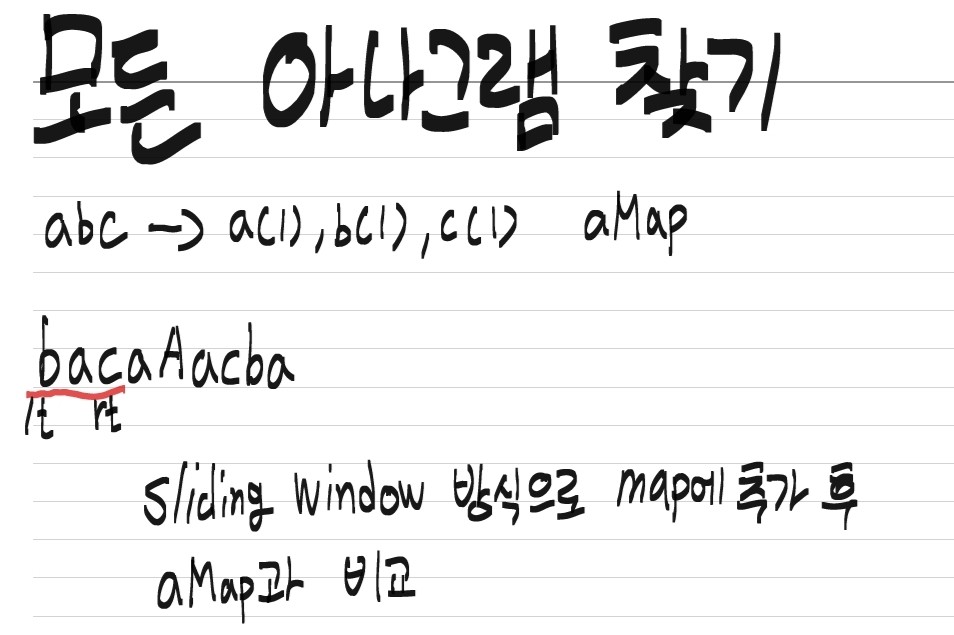 모든 아나그램 찾기
abc -> a(1), b(1), c(1) aMap
bacaAacba
lt rt
sliding window 방식으로 map에 추가 후
aMap과 비교